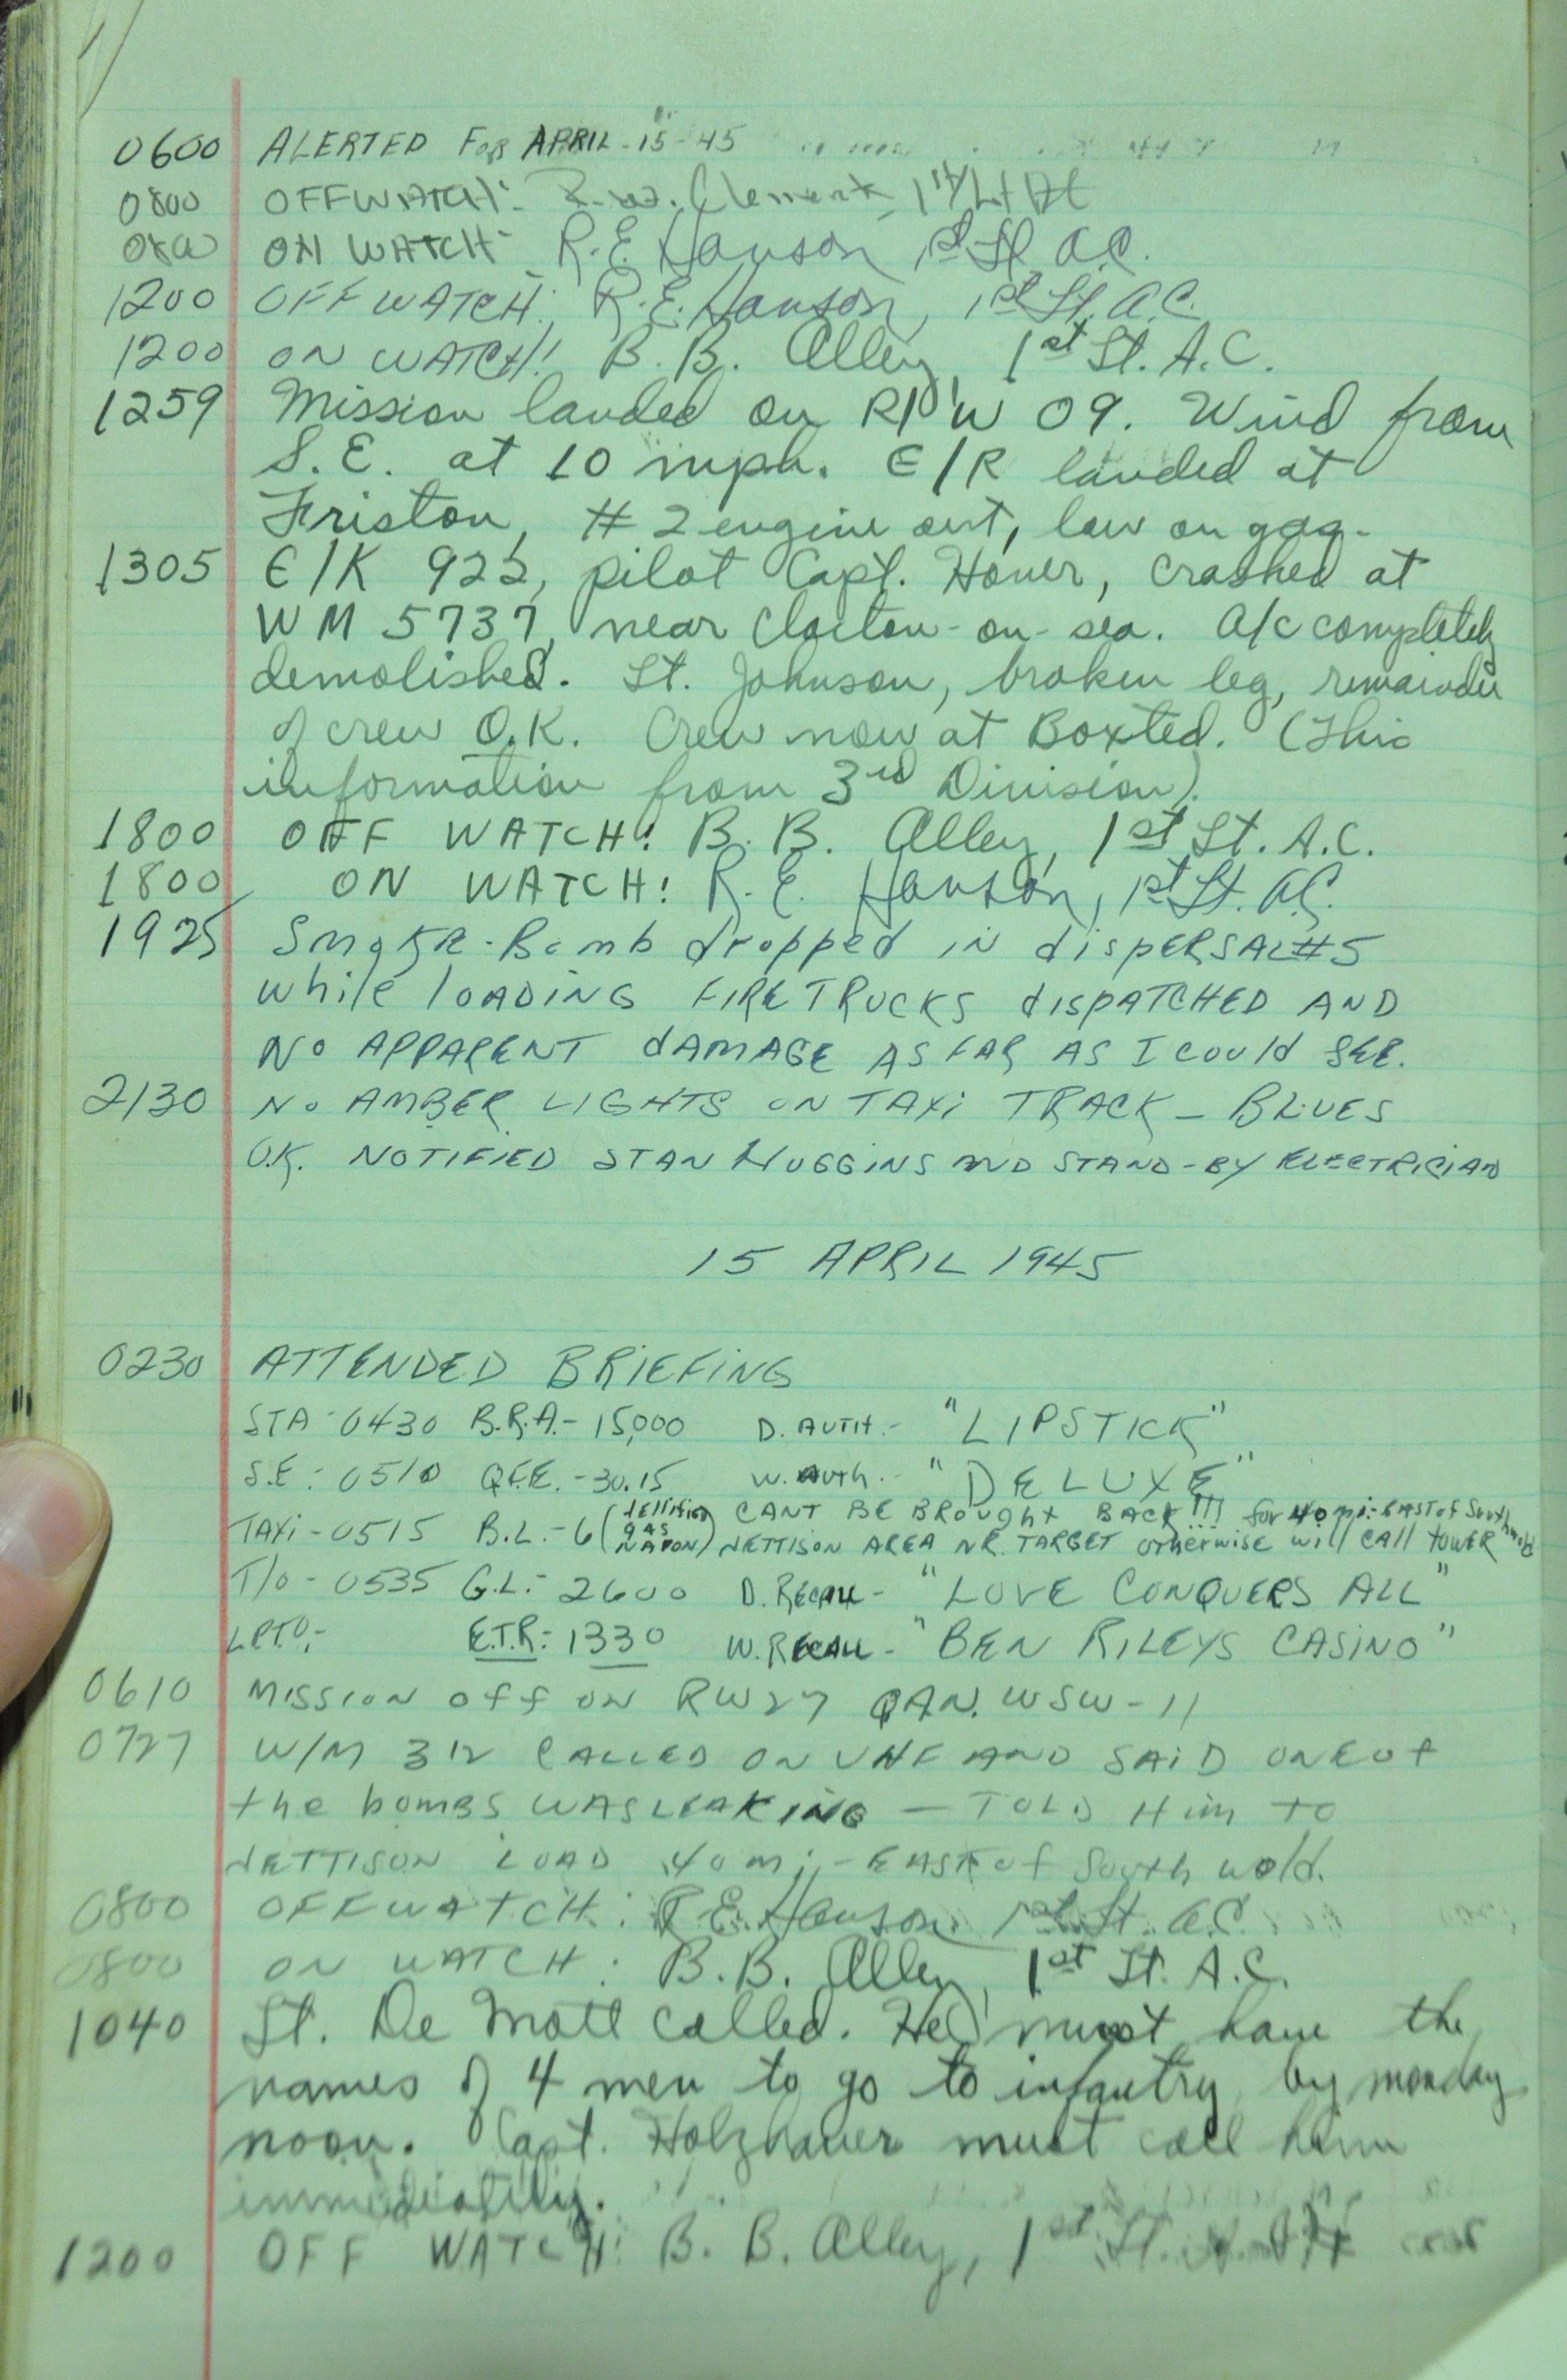 0600 ALERTED FOR APRIL-15-45
0800 OFFWATCH: Clement, 1st Lt AC
0800 ON WATCH: R.E. Hanson 1st Lt. A.C.
1200 OFF WATCH: R.E. Hanson, 1st Lt. A.C.
1200 ON WATCH! B. B. Alley, 1st Lt. A.C.
1259 Mission landed on R/W 09. Wind from
S.E. at 10 mph. E/R landed at
Friston, #2 engine out, low on gas.
1305 E/K 922, pilot Capt. Horner, crashed at
WM 5737, near Clacton-on-sea. A/C completely
demolished. Lt. Johnson, broken leg, remainder
of crew O.K. Crew now at Boxted. (This
information from 3rd Division).
1800 OFF WATCH! B. B. Alley, 1st Lt. A.C.
1800 ON WATCH! R. E. Hanson, 1st Lt. A.C.
1925 Smoke-Bomb dropped in dispERSAL #5
while LOADING FIRETRUCKS dISPATCHED AND
NO APPARENT dAMAGE AS FAR AS I COULD SEE.
2130 NO AMBER LIGHTS ON TAXi TRACK - BLUES
O.K. NOTIFIED STAN HUGGINS AND STAND-BY ELECTRICIAN
15 APRIL 1945
0230 ATTENDED BRIEFING
STA-0430 B.R.A.-15,000 D. AUTH.- "LIPSTICK"
S.E: 0510 Q.F.E.-30.15 W. AUTH.- "DELUXE"
TAXi-0515 B.L.-6 (GAS NAPON) CANT BE BROUGHT BACK!!! for 40 mi-EAST of Southwold
JETTISON AREA NR. TARGET otherwise will CALL TOWER
T/O-0535 G.L.- 2600 D. RECALL- "LOVE CONQUERS ALL"
L.P.T.O.- E.T.R: 1330 W. RECALL- "BEN RILEYS CASINO"
0610 MISSION off ON RW27 WSW-11
0727 W/M 312 CALLED ON VHF AND SAID ONE of
the bombs WAS LEAKING - TOLD HIM TO
JETTISON LOAD 40 mi-EAST of Southwold.
0800 OFF WATCH: R.E. Hanson 1st Lt. A.C.
0800 ON WATCH: B.B. Alley, 1st Lt. A.C.
1040 Lt. De Mott called. He must have the
names of 4 men to go to infantry by monday
noon. Capt. Holzhauer must call him
immediatily.
1200 OFF WATCH: B. B. Alley, 1st Lt.